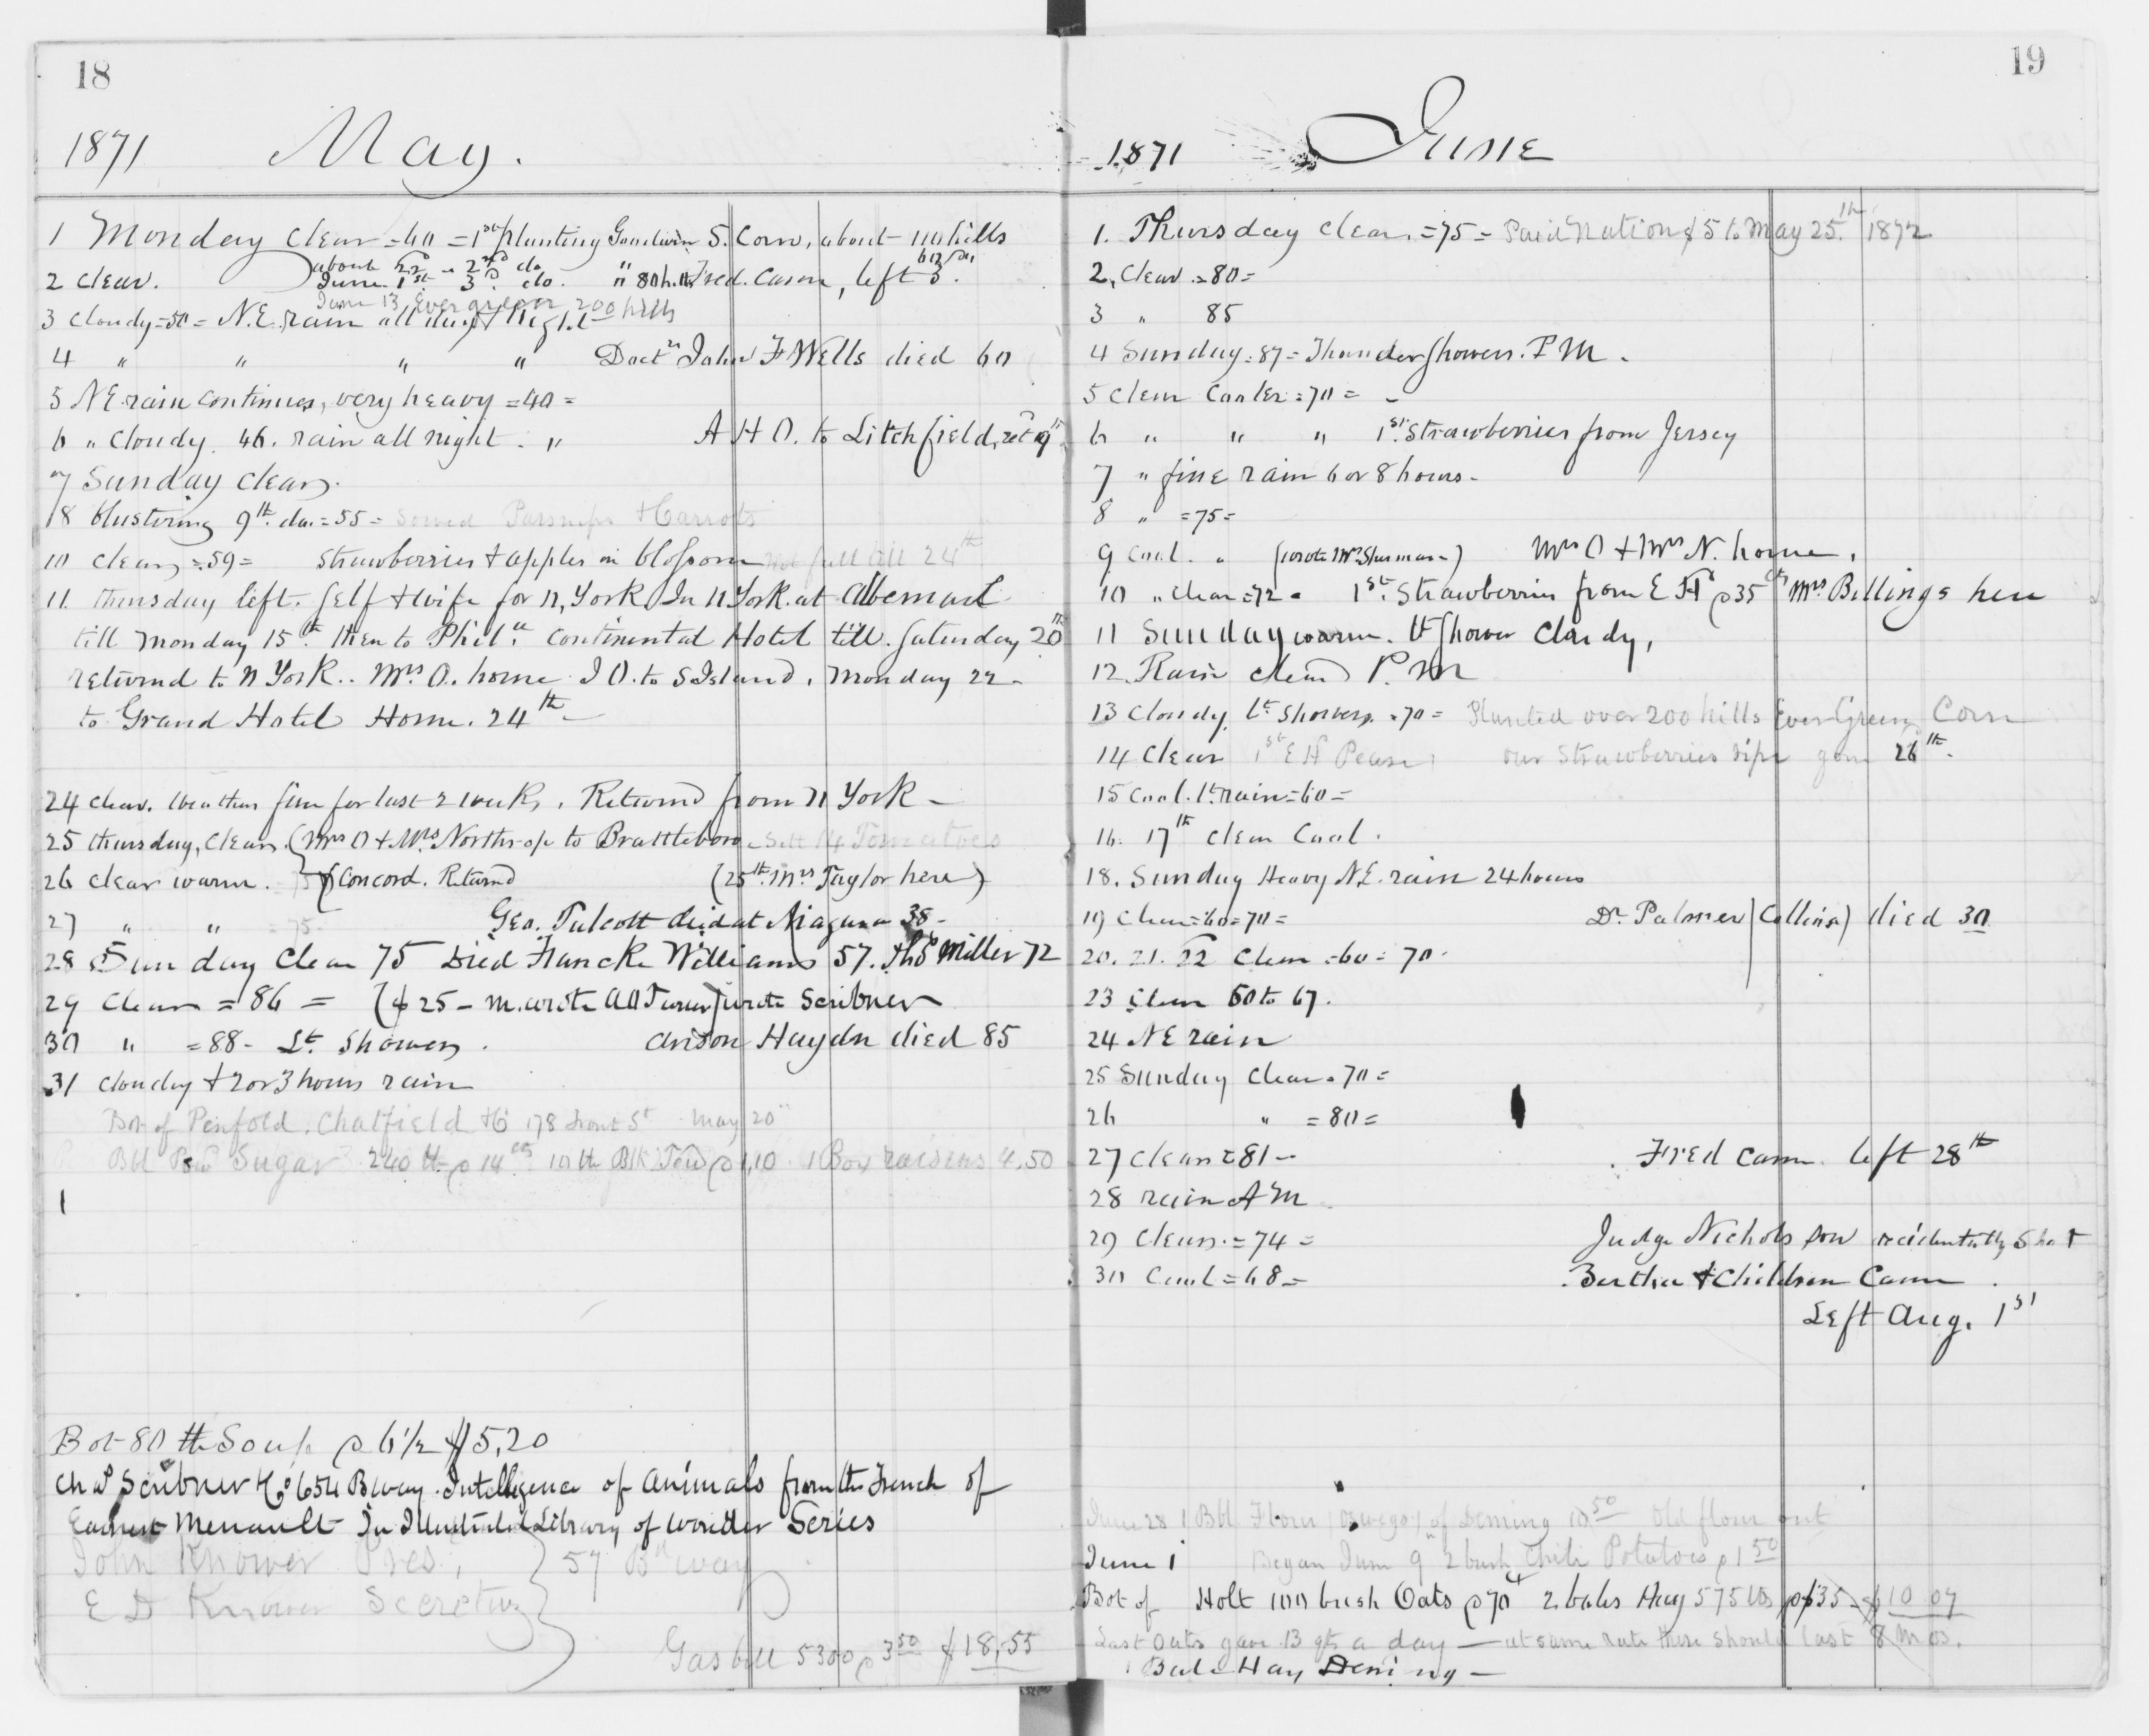 18
1871 May.
1 Monday clear = 60 = 1st planting Goodwin S. Corn, about 110 hills
about 22d - 2nd do " 60 do
2 clear. June 1st 3d do. " 80 h. Fred. came, left 3.
June 13 Evergreen 200 hills
3 Cloudy = 50 = N.E. rain all day & night
4 " " " " Doctr John F Wells died 60
5 NE rain continues, very heavy = 40 =
6 " Cloudy. 46. rain all night. " A H O. to Litchfield, retd 9th
7 Sunday clear.
8 blustering 9th. do. = 55 = Sowed Parsnips & Carrots
10 clear = 59 = Strawberries & apples in blossom not full till 24th
11. thursday left. self & wife for N, York In N York. at Albemarl
till monday 15th. then to Phila. Continental Hotel till. Saturday 20th
returnd to N York. Mrs O. home J O. to S Island. Monday 22 -
to Grand Hotel Home. 24th -
24 clear. weather fine for last 2 weeks, Returnd from N York -
25 thursday, clear. (Mrs O & Mrs Northrop to Brattleboro - Sett 14 Tomatoes
26 clear warm. 75 (Concord. Returnd (25th. Mrs Taylor here)
27 " " = 75 - Geo. Talcott died at Niagara 38 -
28 Sunday Clear 75 Died Francke Williams 57. Thos Miller 72
29 Clear = 86 = ($25 - m. wrote A A Turner) wrote Scribner
30 " = 88 - Lt. Showers. Anson Haydn died 85
31 cloudy & 2 or 3 hours rain
Bot of Penfold. Chatfield & Co 178 Front St May 20"
Bbl Powd Sugar 240 lb @ 14 cts 10 lb Blk Tea @ 1,10 1 Box raisins 4.50
1
Bot 80 lb Soap @ 6 1/2 $5,20
Chas Scribner & Co 654 Bway. Intelligence of Animals from the French of
Earnest Menault In Illustrated Library of Wonder Series
John Knower Pres, } 57 Bdway
E D Knower Secretary
Gas bill 5300 @ 3 50 $18,55
19
1871 June
1. Thursday clear. = 75 = Paid Nation $5 to May 25.th 1872
2, Clear = 80 =
3 " 85
4 Sunday = 87 = Thunder Showers. P M.
5 Clear Cooler = 70 = -
6 " " " 1st. Strawberries from Jersey
7 " fine rain 6 or 8 hours -
8 " = 75 =
9 Cool. " (wrote Mrs Sherman) Mrs O & Mrs N. home.
10 " clear = 72 = 1st. Strawberries from E Hd @ 35 cts Mrs Billings here
11 Sunday warm. Lt shower Cloudy,
12. Rain cleard P. M
13 Cloudy Lt Showers. = 70 = Planted over 200 hills Ever Green Corn
14 Clear 1st E Hd Peas our Strawberries ripe gone 26th.
15 Cool. Lt. rain = 60 =
16. 17th clear Cool.
18. Sunday Heavy N.E. rain 24 hours
19 Clear = 60 = 70 = Dr Palmer (Collins) died 30
20. 21. 22 Clear = 60 = 70 -
23 Clear 60 to 67.
24 NE rain
25 Sunday Clear = 70 =
26 " = 80 =
27 Clear = 81 - Fred came. left 28th
28 rain A M
29 Clear. = 74 = Judge Nichols son accidentally shot
30 Cool = 68 = Bertha & Children Came.
Left Aug. 1st
June 28 1 Bbl Flour (Oswego) of Deming 10 50 Old flour out
June 1 Began June 9" 2 bush Chili Potatoes @ 1 50
Bot of Holt 100 bush Oats @ 70 2 bales Hay 575 lbs @ $35 - $10 07
Last Oats gave 13 qts a day - at same rate these should last 8 mos.
1 Bale Hay Deming -